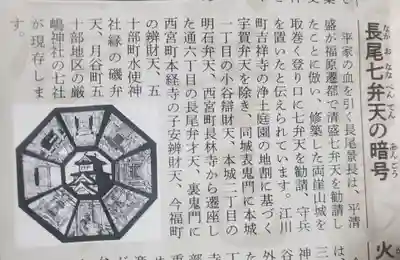 長尾七弁天の暗号
ながおななべんてんのあんごう
平家の血を引く長尾景長は、平清
盛が福原遷都で清盛七弁天を勧請し
たことに倣い、修築した両崖山城を
取巻く登り口に七弁天を勧請、守兵
を置いたと伝えられています。江川
町吉祥寺の浄土庭園の地割に基づく
宇賀弁天を除き、同城表鬼門に本城
一丁目の小谷辯財天、本城二丁目の
明石弁天、西宮町長林寺から遷座し
た通六丁目の長尾弁才天、裏鬼門に
西宮町本経寺の子安辨財天、今福町
の辨財天、五
十部町水使神
社縁の磯弁
天、月谷町五
十部地区の厳
嶋神社の七社
が現存しま
す。
火